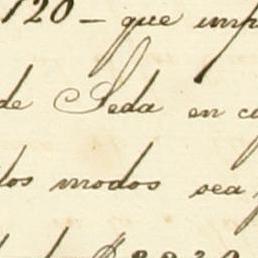 120 – que imp
de Seda en c
los modos sea